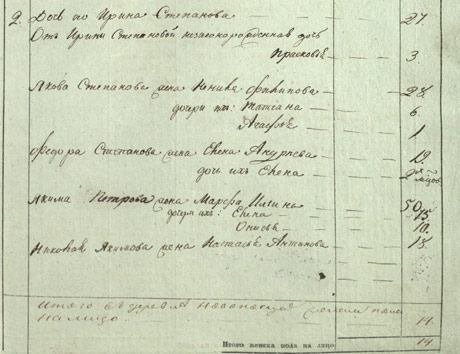 2. Дочь по Ирина Степанова 27
От Ирины Степановой незаконорожденная дочь
Прасковья 3.
Якова Степанова жена 28.
дочери их: Татьяна 6.
Агафья 1
Федора Степанова жена Елена Андреева 19.
дочь ихъ Елена
Якима Петрова жена Марфа 50.
дочери ихъ: Елена 15.
Онисья 10.
Николая Якимова жена Настасья Антонова 18.
Итого в деревне
на лицо. 14.
Итого женска пола на лицо 14.